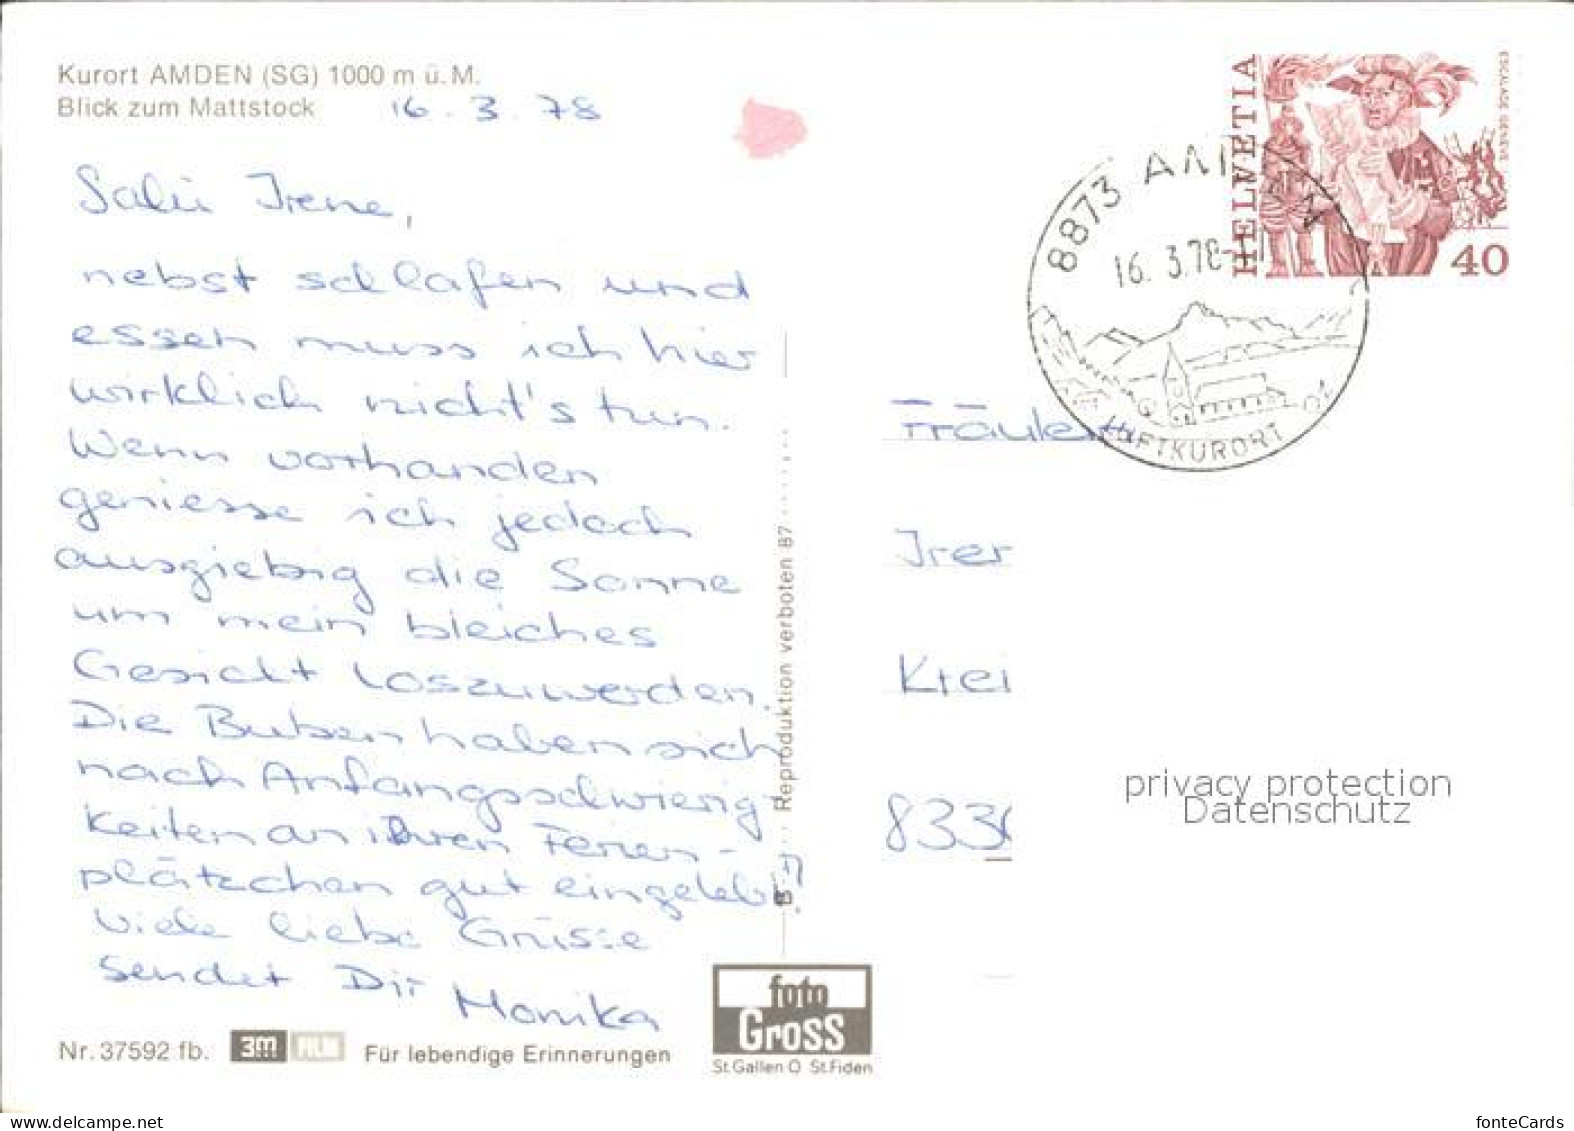 Kurort AMDEN (SG) 1000 m ü. M.
Blick zum Mattstock 16. 3. 78
Salü Irene,
nebst schlafen und
essen muss ich hier
wirklich nicht's tun.
Wenn vorhanden
geniesse ich jedoch
ausgiebig die Sonne
um mein bleiches
Gesicht loszuwerden.
Die Buben haben sich
nach Anfangsschwierig-
keiten an ihren Ferien-
plätzchen gut eingelebt.
Viele liebe Grüsse
sendet Dir Monika
Nr. 37592 fb. 3m FILM Für lebendige Erinnerungen
foto
Gross
St.Gallen O St.Fiden
B Reproduktion verboten 87
HELVETIA
ESCALADE GENÈVE
40
8873
16. 3.78
LUFTKURORT
Fräulein
Irer
Krei
833
privacy protection
Datenschutz
www.delcampe.net
fonteCards